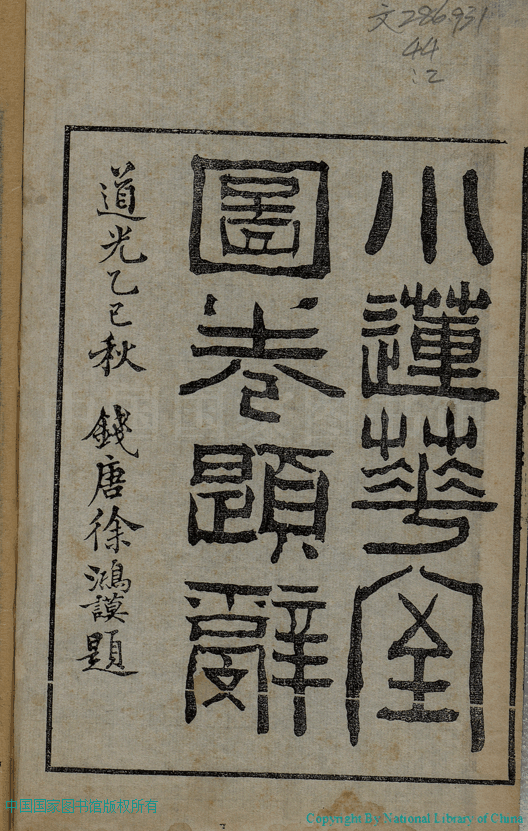 文286931
44
:2
小蓮華室
圖卷題辭
道光乙巳秋 錢唐徐鴻謨題
中国国家图书馆版权所有
Copyright By National Library of China